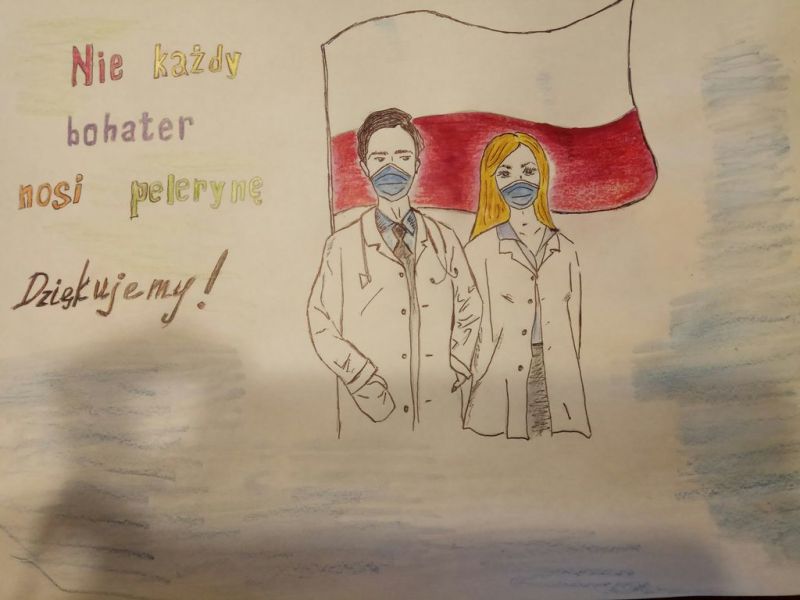 Nie każdy
bohater
nosi pelerynę
Dziękujemy!